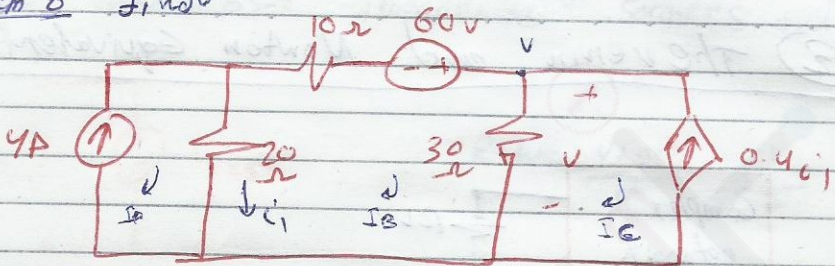 Find
10Ω 60V
- + V
4A 20Ω 30Ω + V - 0.4i1
IA i1 IB IC